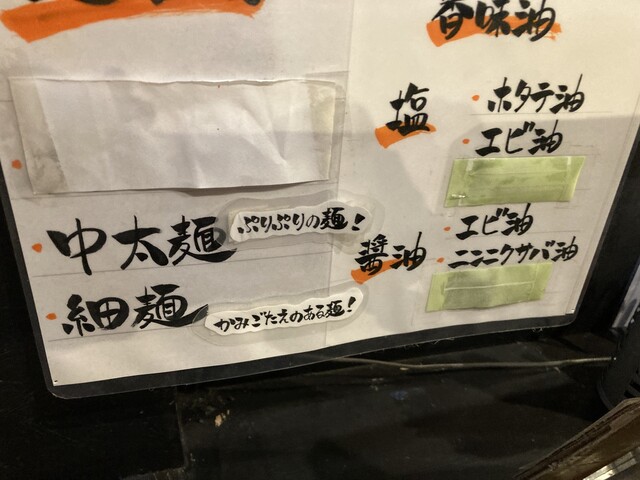 中太麺 ぷりぷりの麺！
細麺 かみごたえのある麺！
香味油
塩
ホタテ油
エビ油
醤油
エビ油
ニンニクサバ油